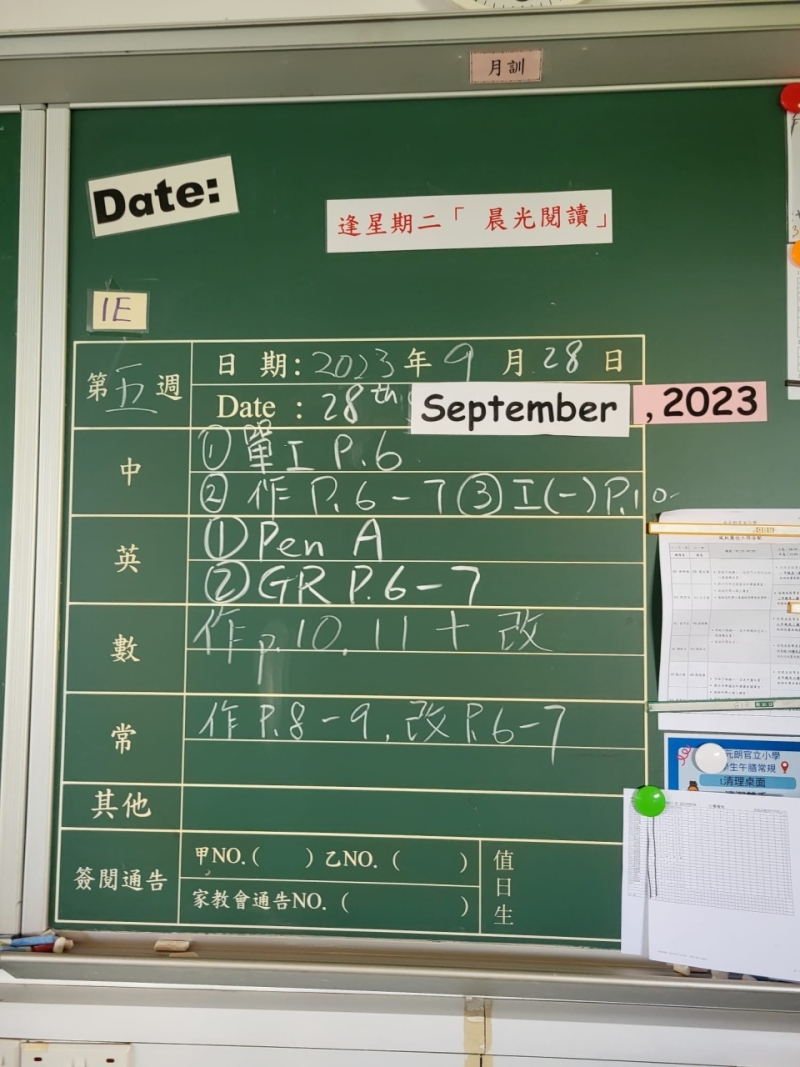 月訓
Date:
逢星期二「晨光閱讀」
1E
第五週
日 期: 2023年 9 月 28 日
Date : 28th September , 2023
中
① 單工 P.6
② 作 P.6-7 ③ 工(一) P.10
英
① Pen A
② GR P.6-7
數
作 p.10, 11 + 改
常
作 P.8-9, 改 P.6-7
其他
簽閱通告
甲NO.( ) 乙NO. ( )
家教會通告NO. ( )
值日生
元朗官立小學
生午膳常規
清理桌面